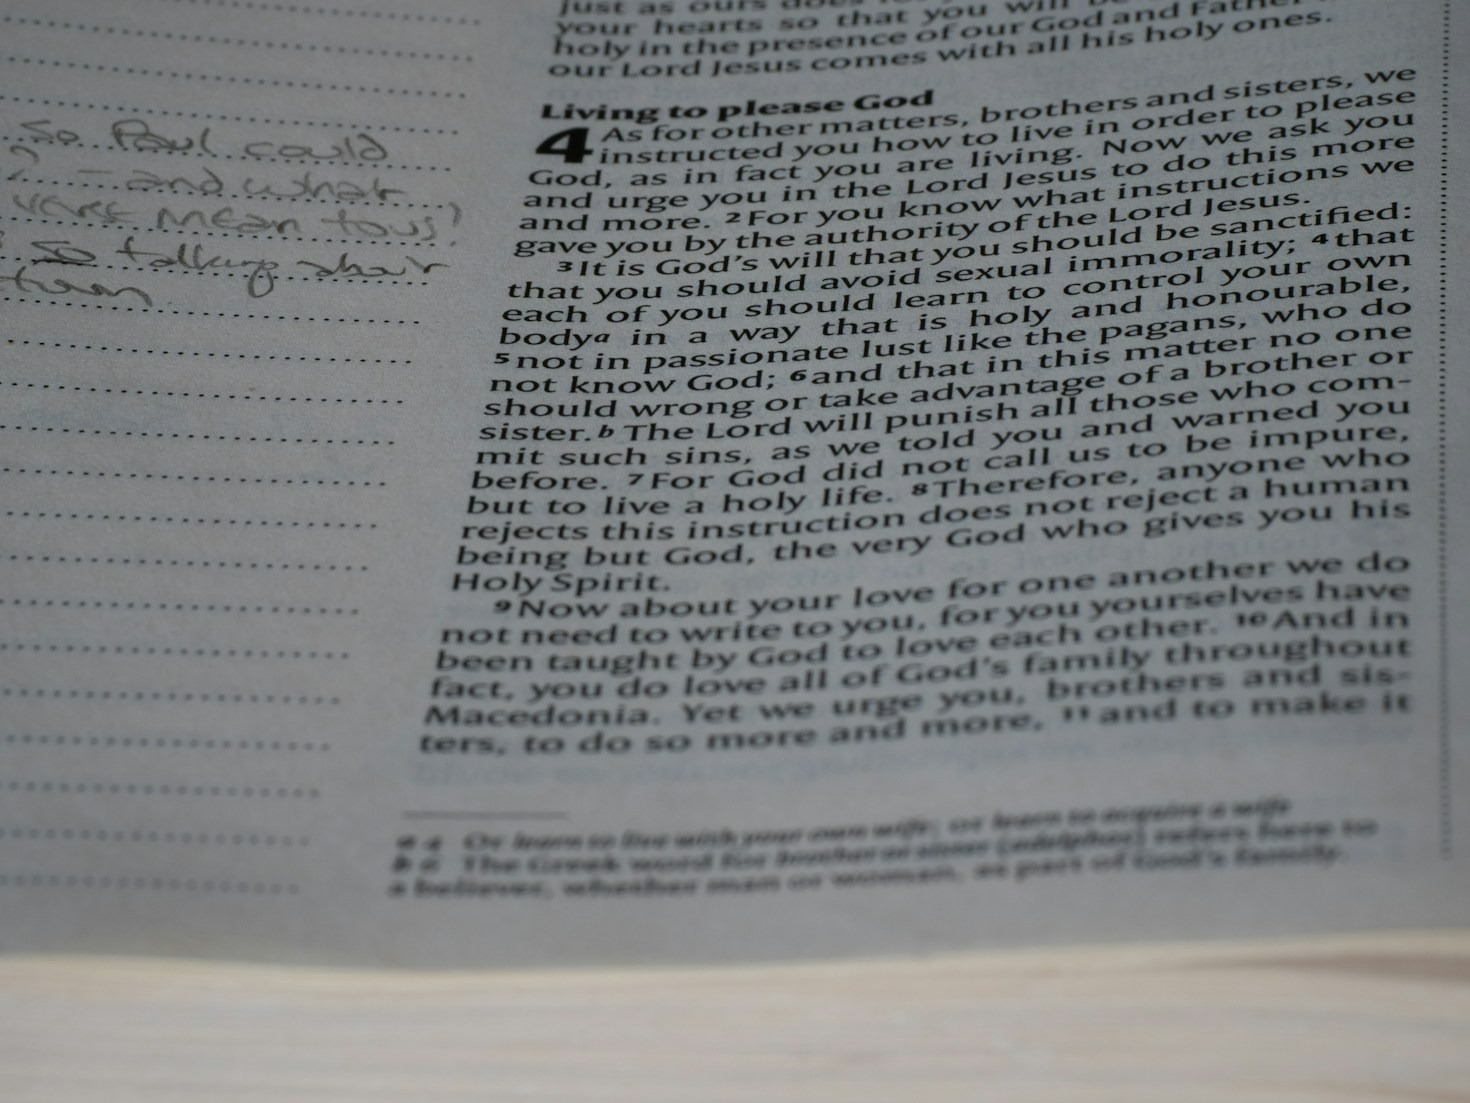 so Paul could
? - and what
verse mean to us?
so talking about
just as ours does
your hearts so that you will be
holy in the presence of our God and Father
our Lord Jesus comes with all his holy ones.
Living to please God
4 As for other matters, brothers and sisters, we
instructed you how to live in order to please
God, as in fact you are living. Now we ask you
and urge you in the Lord Jesus to do this more
and more. 2 For you know what instructions we
gave you by the authority of the Lord Jesus.
3 It is God's will that you should be sanctified:
that you should avoid sexual immorality; 4 that
each of you should learn to control your own
body a in a way that is holy and honourable,
5 not in passionate lust like the pagans, who do
not know God; 6 and that in this matter no one
should wrong or take advantage of a brother or
sister. b The Lord will punish all those who com-
mit such sins, as we told you and warned you
before. 7 For God did not call us to be impure,
but to live a holy life. 8 Therefore, anyone who
rejects this instruction does not reject a human
being but God, the very God who gives you his
Holy Spirit.
9 Now about your love for one another we do
not need to write to you, for you yourselves have
been taught by God to love each other. 10 And in
fact, you do love all of God's family throughout
Macedonia. Yet we urge you, brothers and sis-
ters, to do so more and more, 11 and to make it
a 4 Or learn to live with your own wife; or learn to acquire a wife
b 6 The Greek word for brother or sister (adelphos) refers here to
a believer, whether man or woman, as part of God's family.